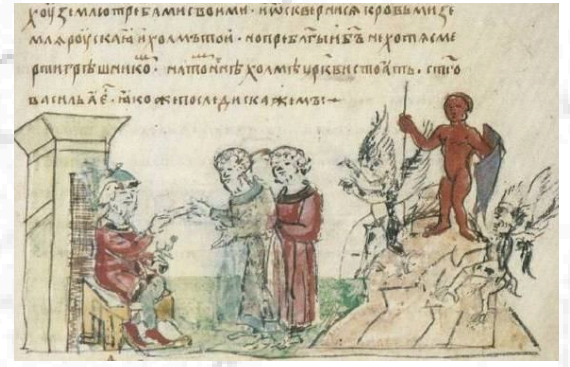 хоу҆ землю требами своими · и҆ ѡ҆скверни сѧ кровьми зе
млѧ роускаа и҆ холмъ той · но пребл҃гы и҆ бъ не хотѧ сме
рти грѣшнико · на том не холмѣ цр҃кви стоать · ст҃го
васильа е҆ · ꙗко же последи скажемъ